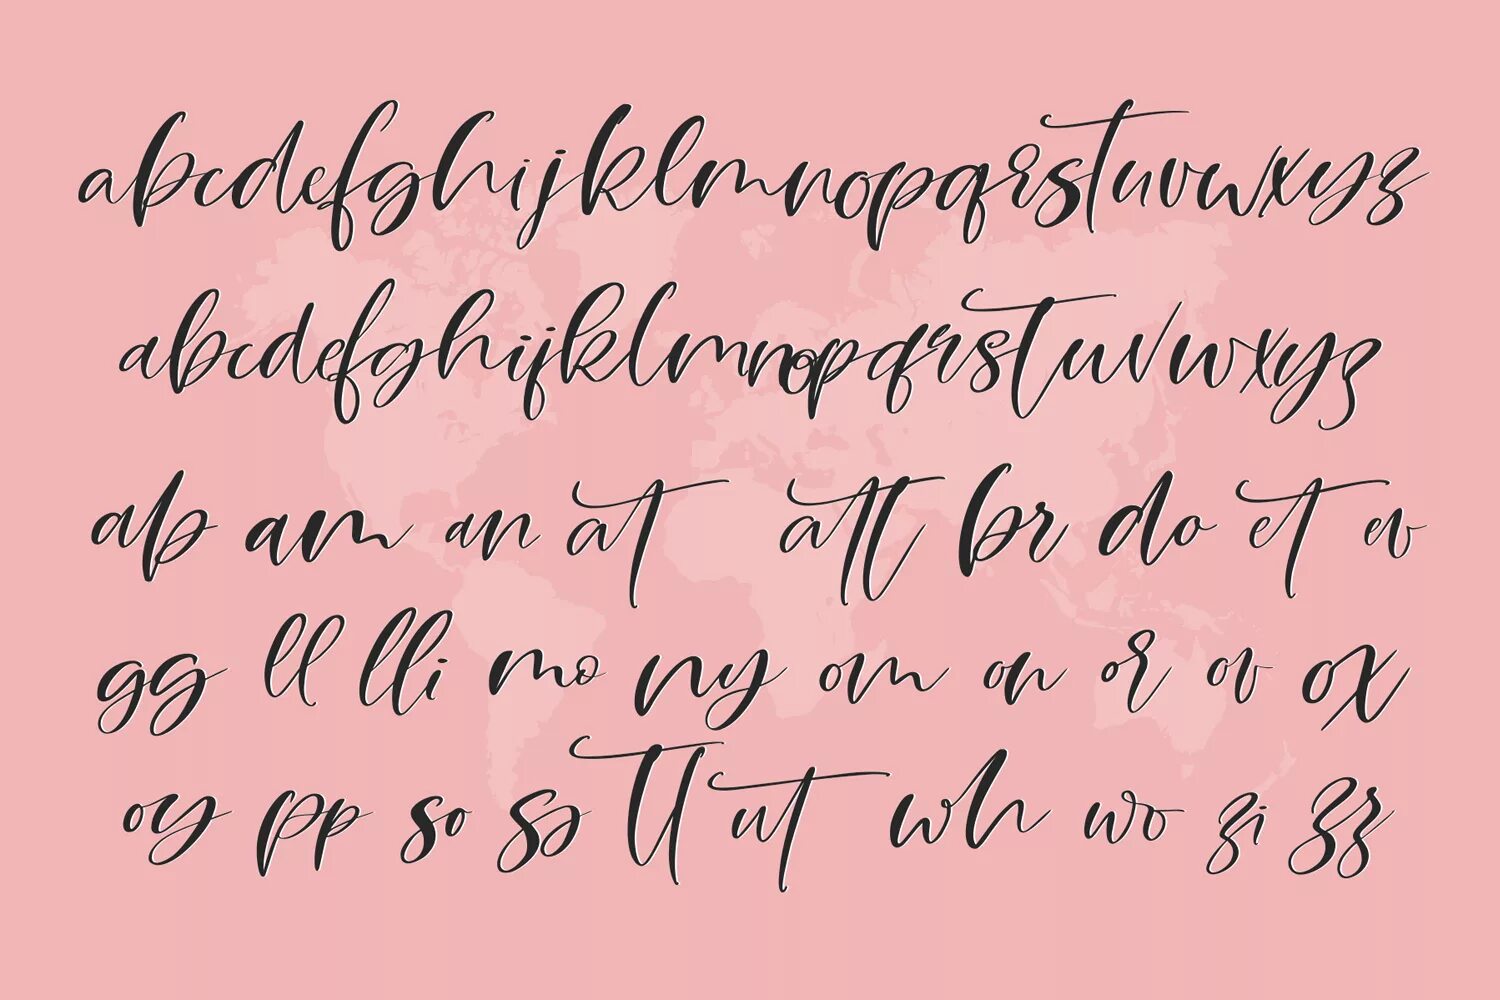 abcdefghijklmnopqrstuvwxyz
abcdefghijklmnopqrstuvwxyz
ab am an at att br do et ev
gg ll lli mo ny om on or ov ox
oy pp so ss tt ut wh wo zi zz